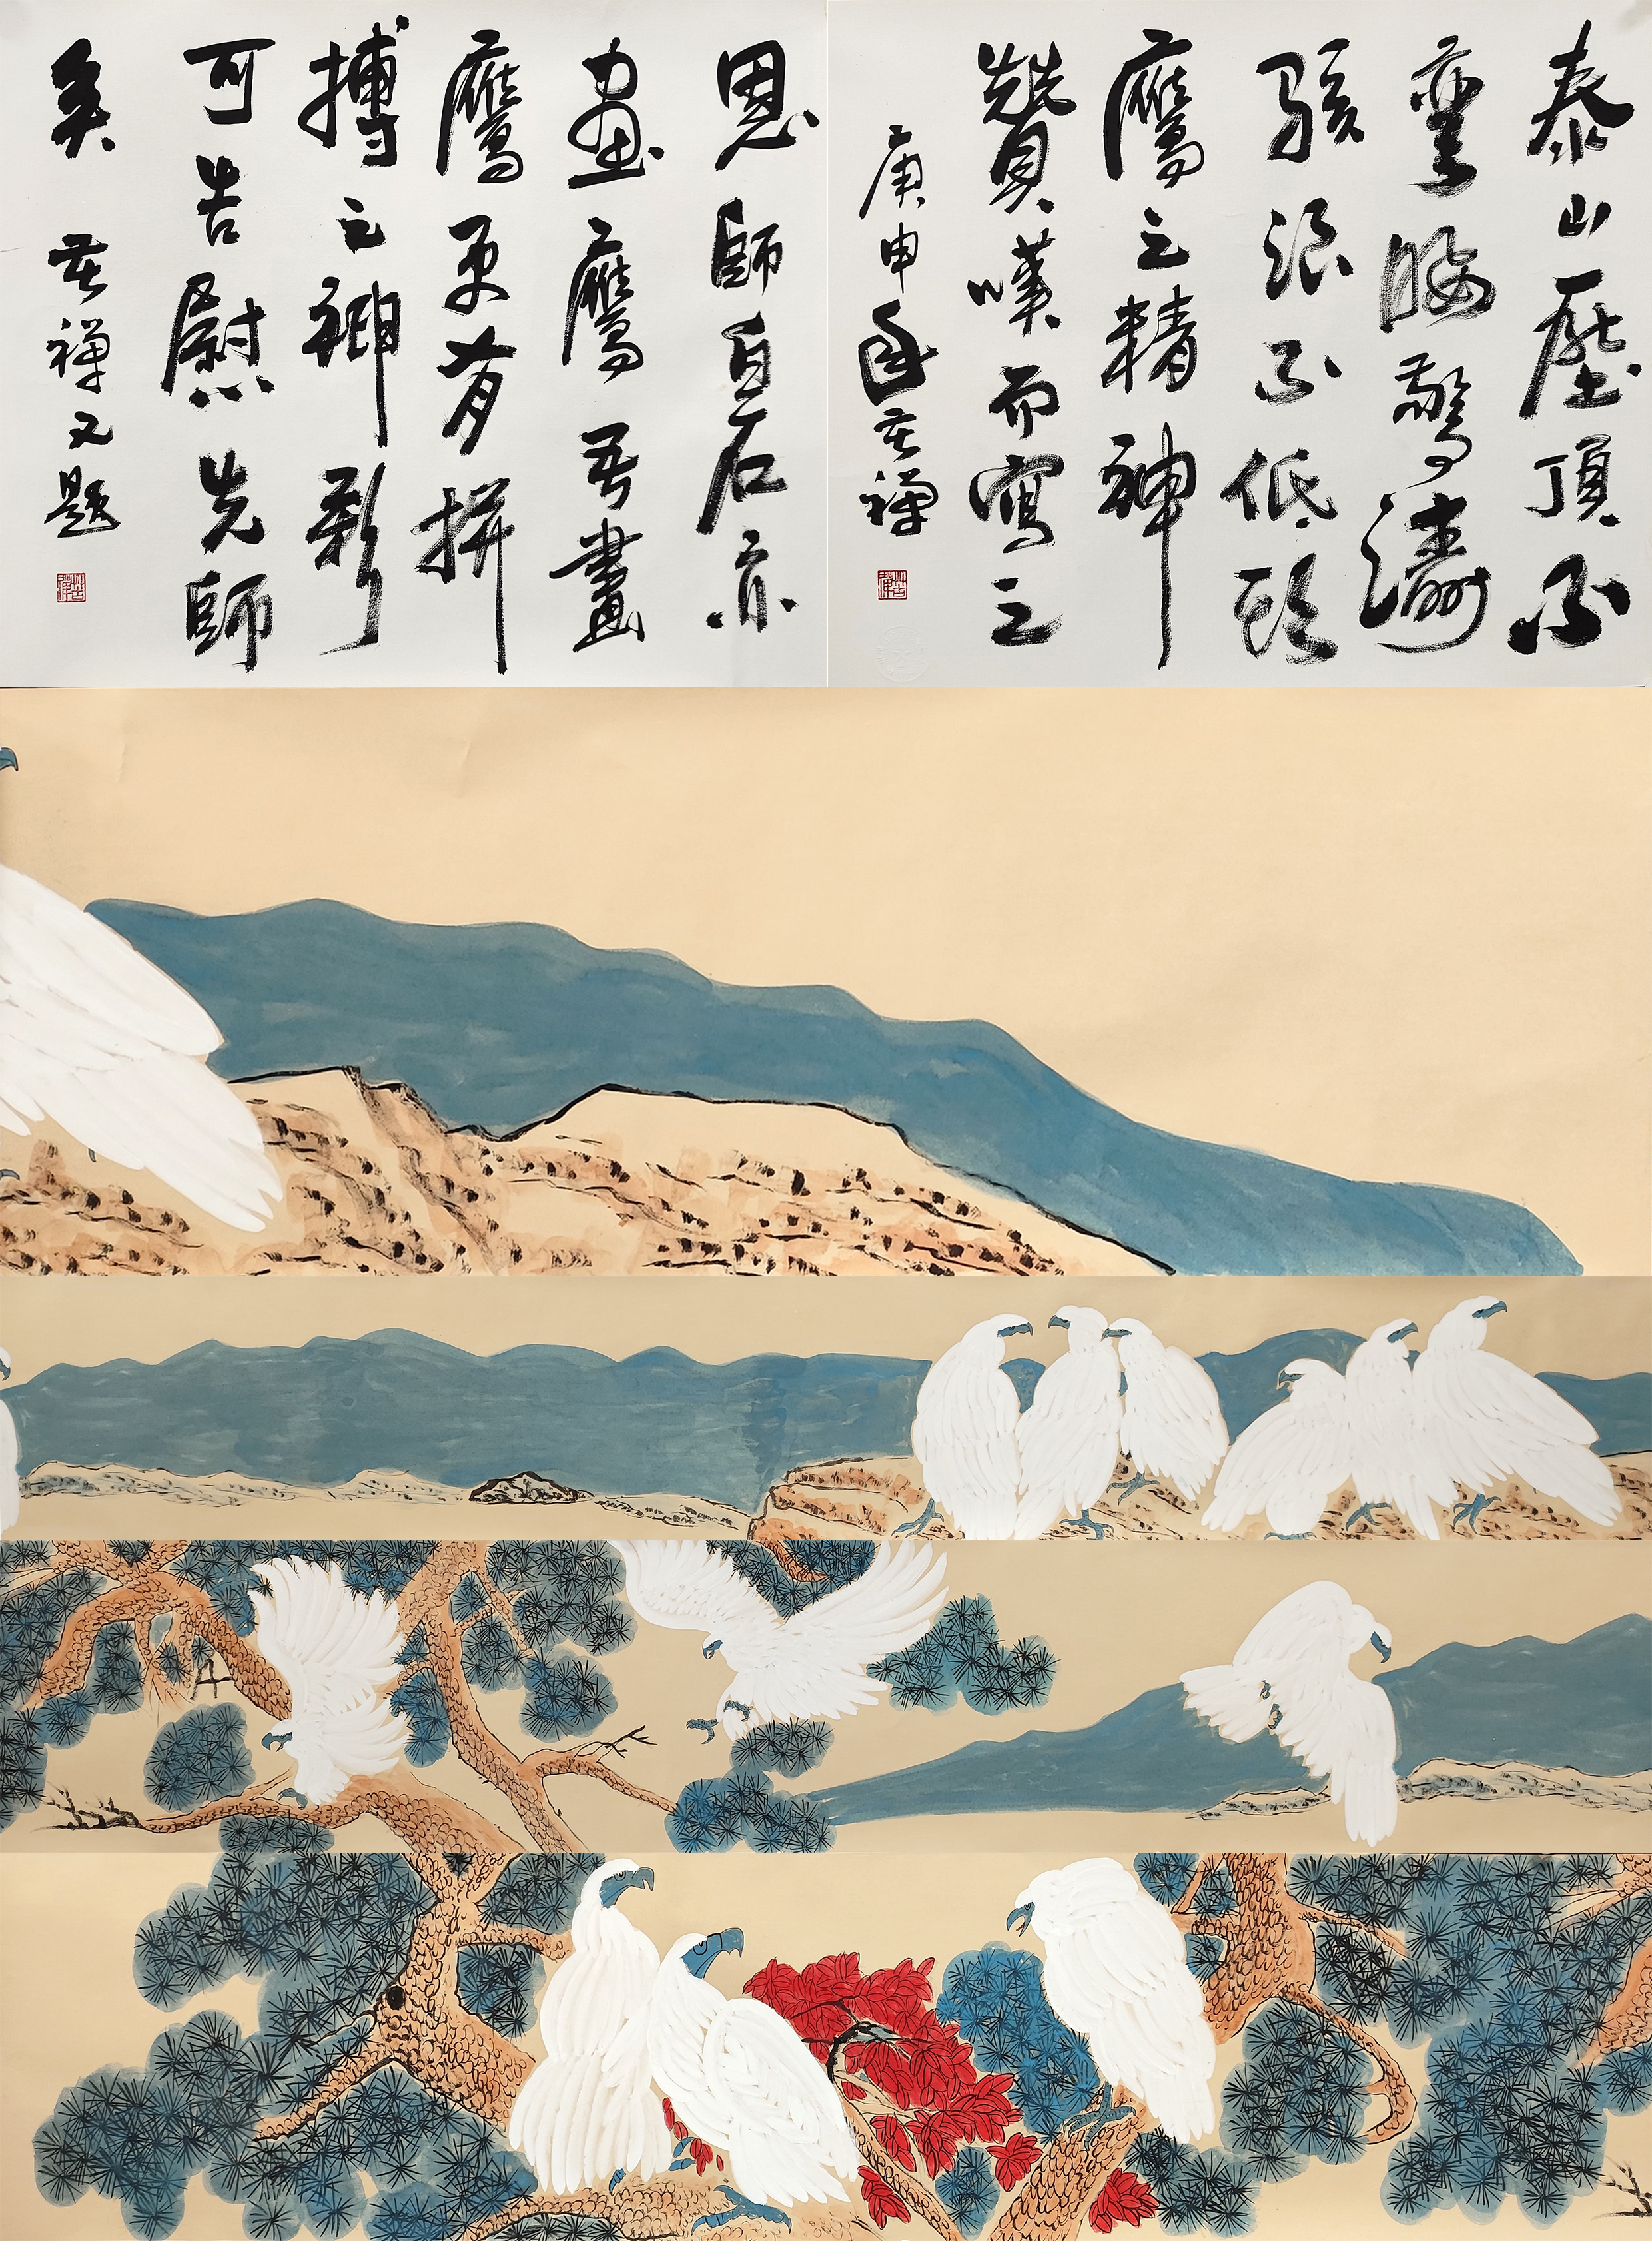 泰山壓頂不
彎腰驚濤
駭浪不低頭
鷹之精神
贊嘆而寫之
庚申年苦禪
恩師白石亦
畫鷹吾畫
鷹更有拼
搏之神彩
可告慰先師
矣 苦禪又題